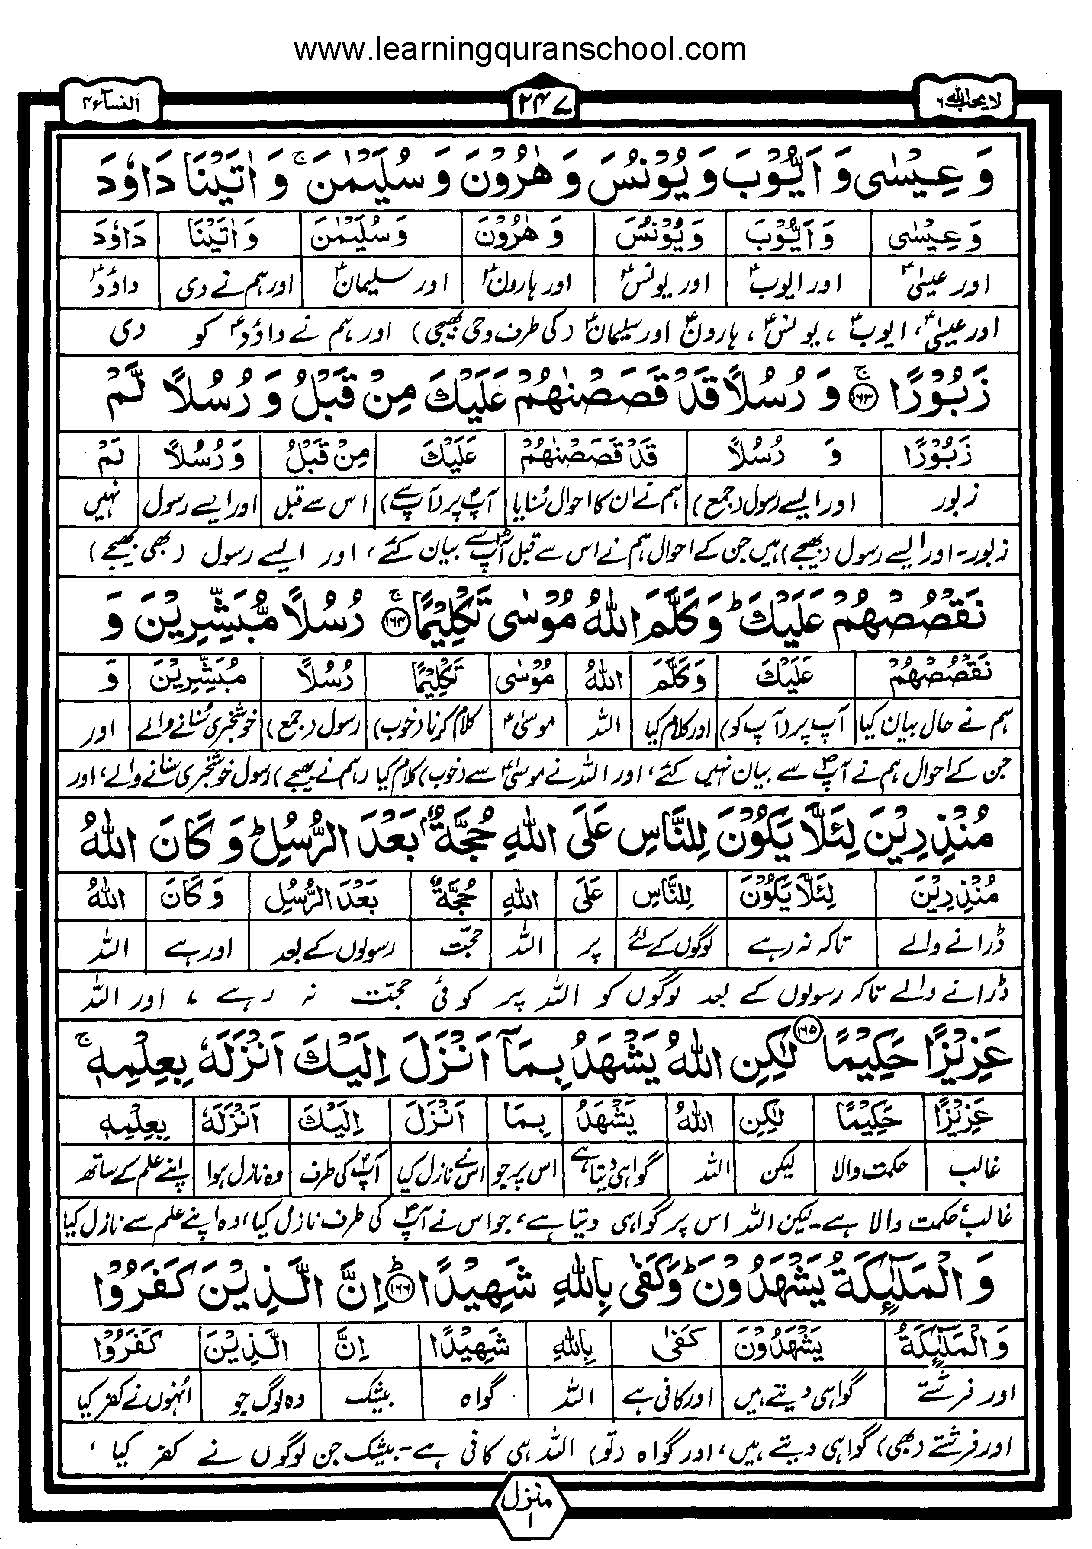 www.learningquranschool.com
لا یحب اللہ ۶
۲۴۷
النسآء ۴
وَ عِيْسٰى وَ اَيُّوْبَ وَ يُوْنُسَ وَ هٰرُوْنَ وَ سُلَيْمٰنَ ۚ وَ اٰتَيْنَا دَاوٗدَ
وَ عِيْسٰى وَ اَيُّوْبَ وَ يُوْنُسَ وَ هٰرُوْنَ وَ سُلَيْمٰنَ وَ اٰتَيْنَا دَاوٗدَ
اور عیسیٰؑ اور ایوبؑ اور یونسؑ اور ہارونؑ اور سلیمانؑ اور ہم نے دی داؤدؑ
اور عیسیٰؑ، ایوبؑ، یونسؑ، ہارونؑ اور سلیمانؑ (کی طرف وحی بھیجی) اور ہم نے داؤدؑ کو دی
زَبُوْرًا ۚ ۱۶۳ وَ رُسُلًا قَدْ قَصَصْنٰهُمْ عَلَيْكَ مِنْ قَبْلُ وَ رُسُلًا لَّمْ
زَبُوْرًا وَ رُسُلًا قَدْ قَصَصْنٰهُمْ عَلَيْكَ مِنْ قَبْلُ وَ رُسُلًا لَّمْ
زبور اور ایسے رسول (جمع) ہم نے ان کا احوال سُنایا آپؐ پر (آپ سے) اس سے قبل اور ایسے رسول نہیں
زبور۔ اور ایسے رسول (بھیجے) ہیں جن کے احوال ہم نے اس سے قبل آپؐ سے بیان کئے، اور ایسے رسول (بھی بھیجے)
نَقْصُصْهُمْ عَلَيْكَ ؕ وَ كَلَّمَ اللّٰهُ مُوْسٰى تَكْلِيْمًا ۚ ۱۶۴ رُسُلًا مُّبَشِّرِيْنَ وَ
نَقْصُصْهُمْ عَلَيْكَ وَ كَلَّمَ اللّٰهُ مُوْسٰى تَكْلِيْمًا رُسُلًا مُبَشِّرِيْنَ وَ
ہم نے حال بیان کیا آپ پر (آپ کو) اور کلام کیا اللہ موسیٰؑ کلام کرنا (خوب) رسول (جمع) خوشخبری سُنانے والے اور
جن کے احوال ہم نے آپؐ سے بیان نہیں کئے، اور اللہ نے موسیٰؑ سے (خوب) کلام کیا (ہم نے بھیجے) رسول خوشخبری سنانے والے، اور
مُنْذِرِيْنَ لِئَلَّا يَكُوْنَ لِلنَّاسِ عَلَى اللّٰهِ حُجَّةٌۢ بَعْدَ الرُّسُلِ ؕ وَ كَانَ اللّٰهُ
مُنْذِرِيْنَ لِئَلَّا يَكُوْنَ لِلنَّاسِ عَلَى اللّٰهِ حُجَّةٌۢ بَعْدَ الرُّسُلِ وَ كَانَ اللّٰهُ
ڈرانے والے تاکہ نہ رہے لوگوں کے لئے پر اللہ حجّت رسولوں کے بعد اور ہے اللہ
ڈرانے والے تاکہ رسولوں کے بعد لوگوں کو اللہ پر کوئی حجّت نہ رہے، اور اللہ
عَزِيْزًا حَكِيْمًا ۱۶۵ لٰكِنِ اللّٰهُ يَشْهَدُ بِمَآ اَنْزَلَ اِلَيْكَ اَنْزَلَهٗ بِعِلْمِهٖ ۚ
عَزِيْزًا حَكِيْمًا لٰكِنِ اللّٰهُ يَشْهَدُ بِمَا اَنْزَلَ اِلَيْكَ اَنْزَلَهٗ بِعِلْمِهٖ
غالب حکمت والا لیکن اللہ گواہی دیتا ہے اس پر جو اس نے نازل کیا آپؐ کی طرف وہ نازل ہوا اپنے علم کے ساتھ
غالب، حکمت والا ہے۔ لیکن اللہ اس پر گواہی دیتا ہے، جو اس نے آپؐ کی طرف نازل کیا، وہ اپنے علم سے نازل کیا
وَ الْمَلٰٓئِكَةُ يَشْهَدُوْنَ ؕ وَ كَفٰى بِاللّٰهِ شَهِيْدًا ؕ ۱۶۶ اِنَّ الَّذِيْنَ كَفَرُوْا
وَ الْمَلٰٓئِكَةُ يَشْهَدُوْنَ كَفٰى بِاللّٰهِ شَهِيْدًا اِنَّ الَّذِيْنَ كَفَرُوْا
اور فرشتے گواہی دیتے ہیں اور کافی ہے اللہ گواہ بیشک وہ لوگ جو اُنہوں نے کفر کیا
اور فرشتے (بھی) گواہی دیتے ہیں، اور گواہ (تو) اللہ ہی کافی ہے۔ بیشک جن لوگوں نے کفر کیا،
منزل ۱